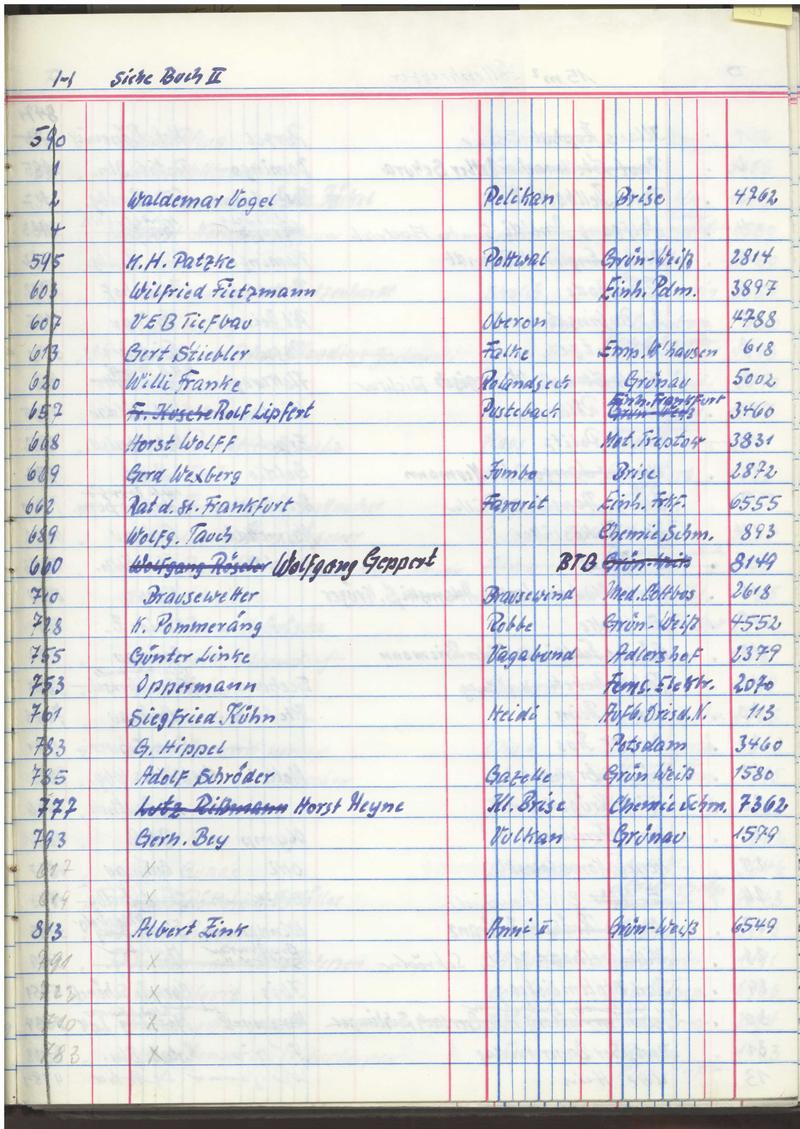 H Siehe Buch II
590
1
2 Waldemar Vogel Pelikan Brise 4762
4
595 K.H. Patzke Pottwal Grün-Weiß 2814
603 Wilfried Fietzmann Einh. Pdm. 3897
607 VEB Tiefbau Oberon 4788
613 Gert Stiebler Falke Emp. W'hausen 618
620 Willi Franke Rolandseck Grünau 5002
657 Rolf Lipfert Pustebach Einh. Frankfurt Grün-Weiß 3460
668 Horst Wolff Mot. Treptow 3831
669 Gerd Wexberg Jumbo Brise 2872
662 Rat d. St. Frankfurt Favorit Einh. Frkf. 6555
689 Wolfg. Tauch Chemie Schm. 893
660 Wolfgang Röseler Wolfgang Geppert BTB Grün-Weiß 8149
710 Brausewetter Brausewind Med. Cottbus 2618
728 K. Pommeräng Robbe Grün-Weiß 4552
755 Günter Linke Vagabund Adlershof 2379
753 Oppermann Ferns. Elektr. 2070
761 Siegfried Kühn Heidi Aufb. Dresd. N. 113
783 G. Hippel Potsdam 3460
785 Adolf Schröder Gazelle Grün Weiß 1580
777 Lutz Rißmann Horst Heyne Kl. Brise Chemie Schm. 7362
793 Gerh. Bey Volkan Grünau 1579
617 x
614 x
813 Albert Zink Anni II Grün-Weiß 6549
791 x
723 x
710 x
783 x